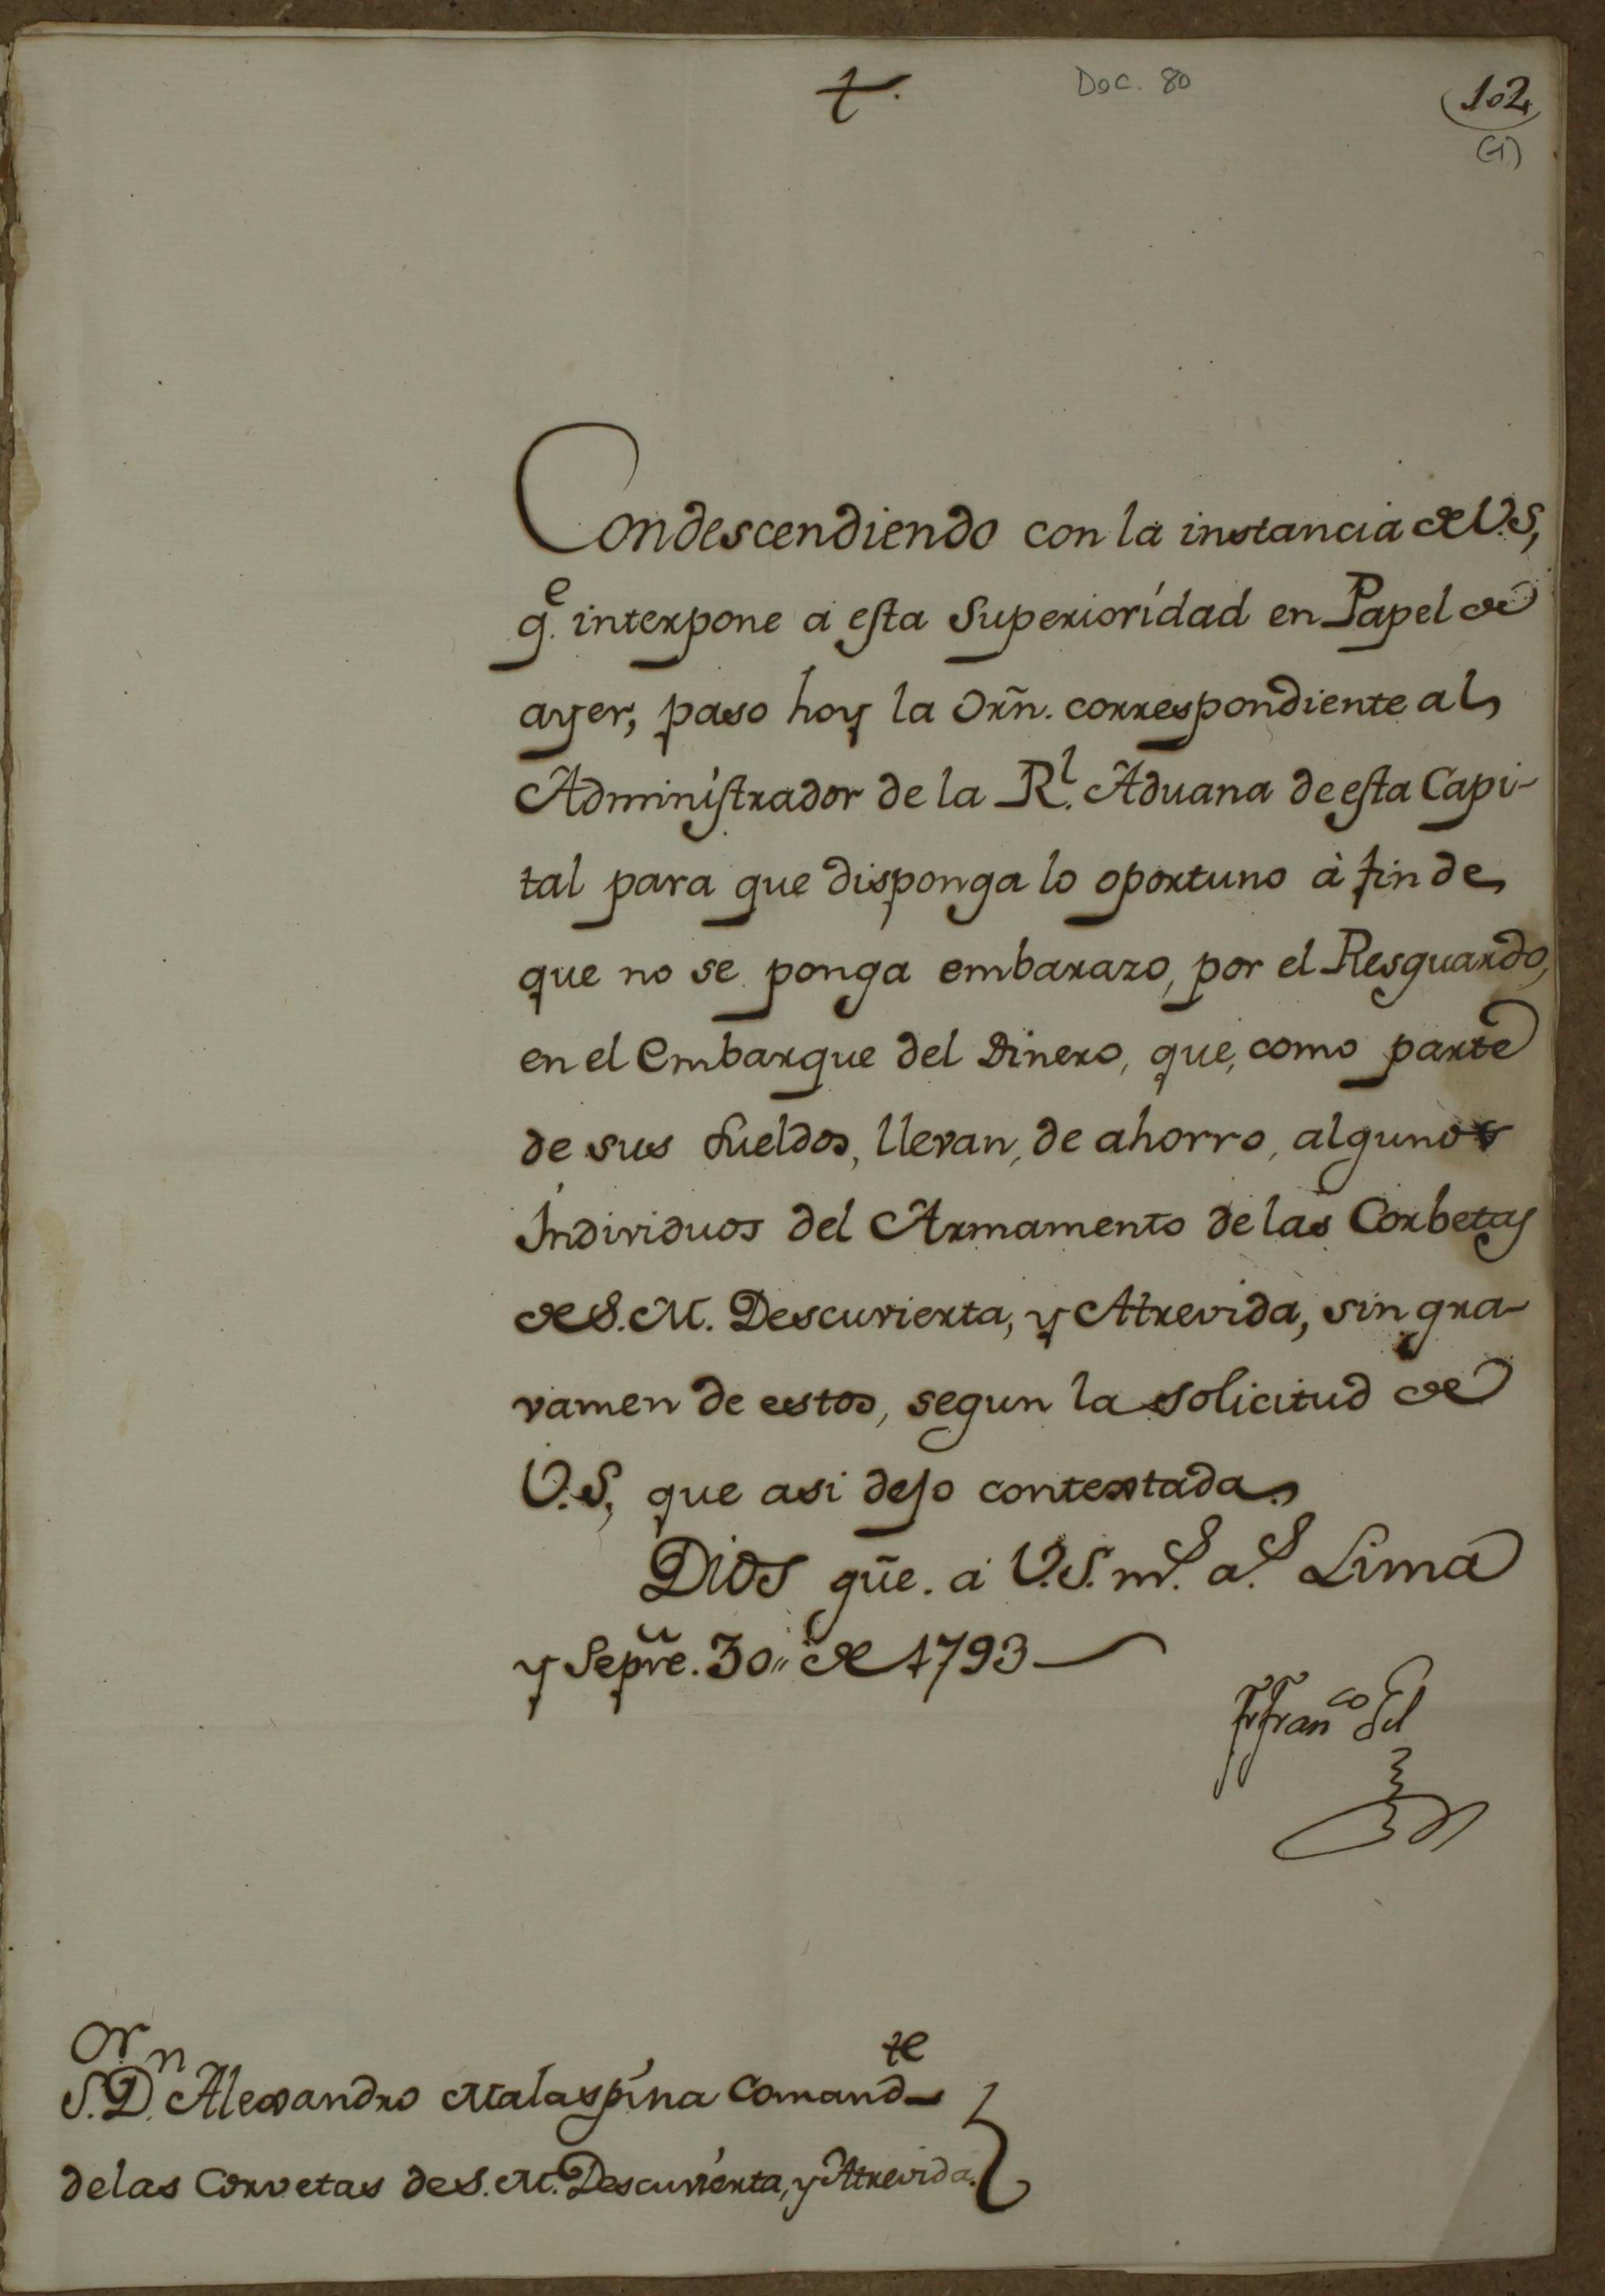 †. Doc. 80 102
(1)
Condescendiendo con la instancia de V.S,
q.e interpone a esta Superioridad en Papel de
ayer, paso hoy la Orñ. correspondiente al
Administrador de la R.l Aduana de esta Capi-
tal para que disponga lo oportuno à fin de
que no se ponga embarazo, por el Resguardo,
en el Embarque del Dinero, que, como parte
de sus Sueldos, llevan, de ahorro, algunos
Individuos del Armamento de las Corbetas
de S.M. Descuvierta, y Atrevida, sin gra-
vamen de estos, segun la solicitud de
V.S, que asi dejo contextada.
Dios gũe. a V.S. m.s a.s Lima
y Sepre. 30,, de 1793
Fr Fran.co Gil
S.or D.n Alexandro Malaspina Comand.te
de las Corvetas de S.M. Descuvierta, y Atrevida.